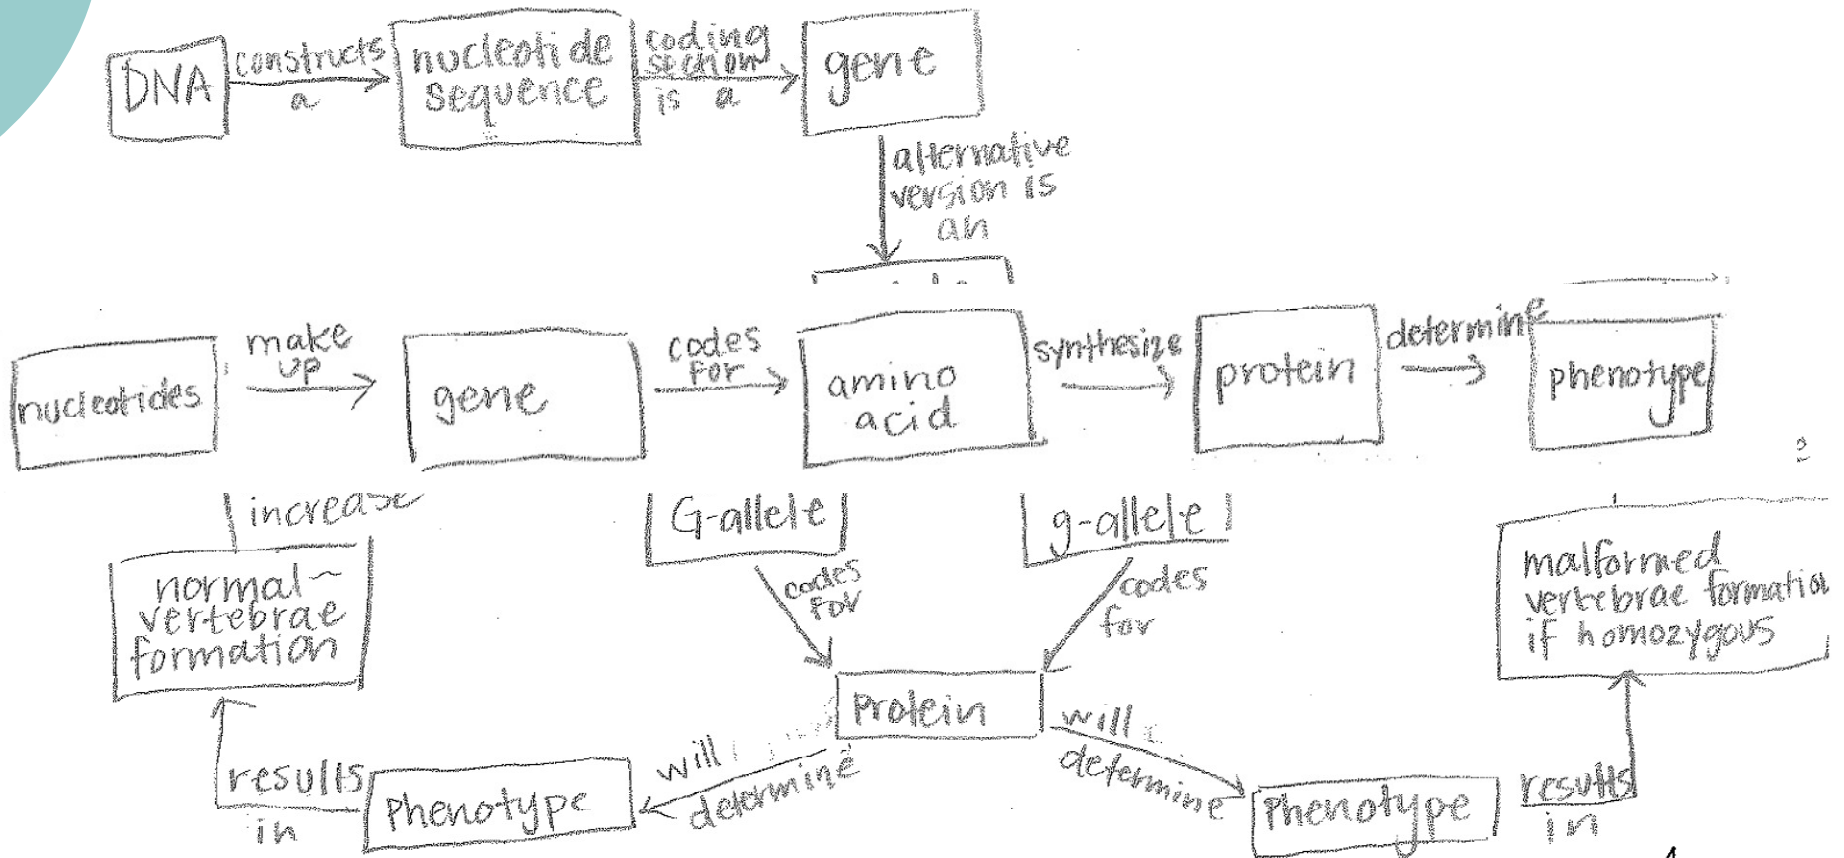 DNA
constructs
a
nucleotide
sequence
coding
section
is a
gene
alternative
version is
an
nucleotides
make
up
gene
codes
for
amino
acid
synthesize
protein
determine
phenotype
increase
G-allele
g-allele
normal
vertebrae
formation
codes
for
codes
for
malformed
vertebrae formation
if homozygous
Protein
will
determine
will
determine
results
in
Phenotype
Phenotype
results
in